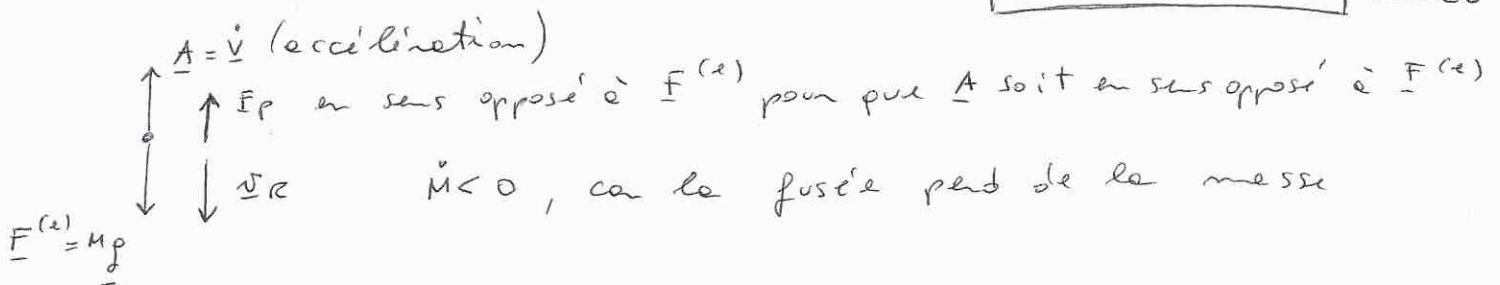 A = V̇ (accélération)
Fp en sens opposé à F^(e) pour que A soit en sens opposé à F^(e)
vR Ṁ < 0, car la fusée perd de la masse
F^(e) = Mg